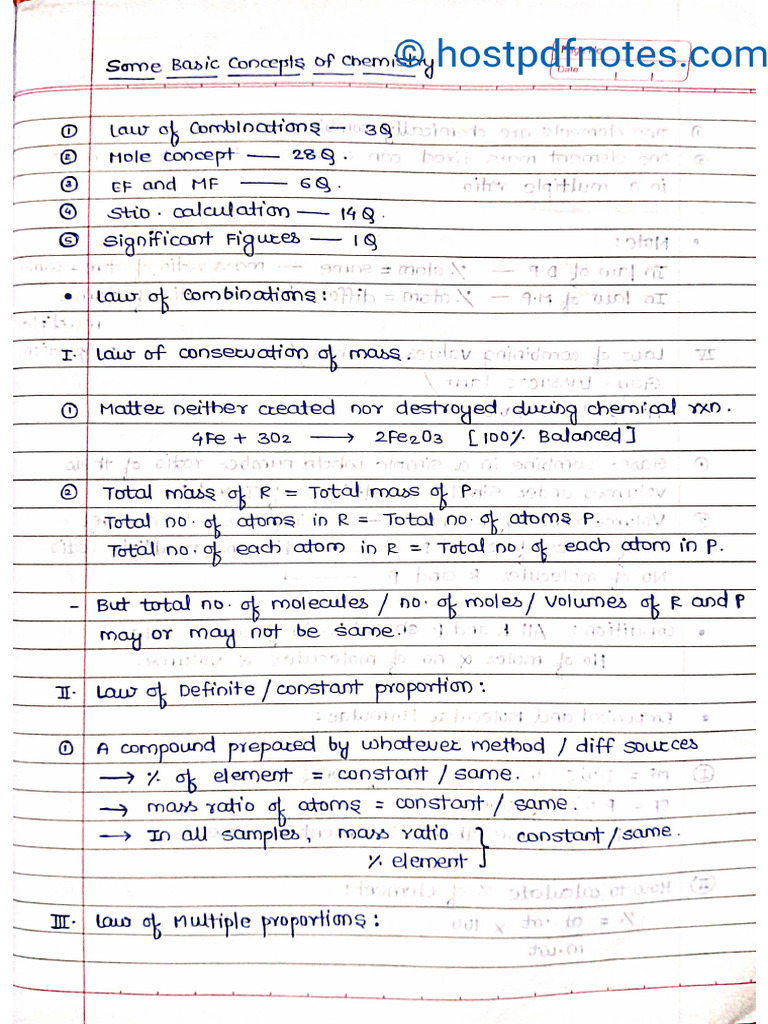 Some Basic Concepts of Chemistry
© hostpdfnotes.com
Page No.
Date
① Law of Combinations — 3Q
② Mole concept — 28Q.
③ EF and MF — 6Q.
④ Stio. calculation — 14Q.
⑤ Significant Figures — 1Q
• Law of Combinations:
I. Law of conservation of mass.
① Matter neither created nor destroyed during chemical rxn.
4Fe + 3O2 ⟶ 2Fe2O3 [100% Balanced]
② Total mass of R = Total mass of P.
Total no. of atoms in R = Total no. of atoms P.
Total no. of each atom in R = Total no. of each atom in P.
- But total no. of molecules / no. of moles / Volumes of R and P
may or may not be same.
II. Law of Definite / constant proportion:
① A compound prepared by whatever method / diff sources
→ % of element = constant / same.
→ mass ratio of atoms = constant / same.
→ In all samples, mass ratio } constant / same.
% element
III. Law of Multiple proportions: